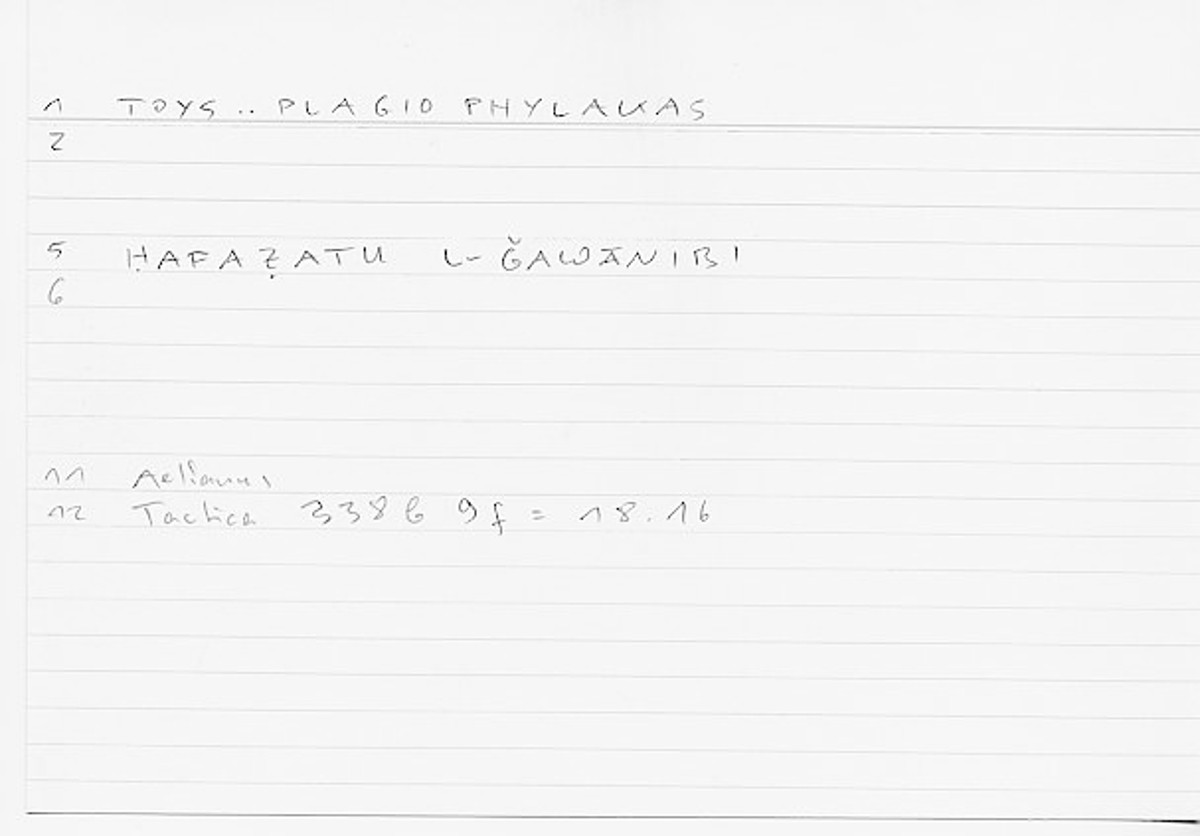 1 TOYS.. PLAGIO PHYLAKAS
2
5 ḤAFAẒATU L-ǦAWĀNIBI
6
11 Aelianus
12 Tactica 338b 9f = 18.16